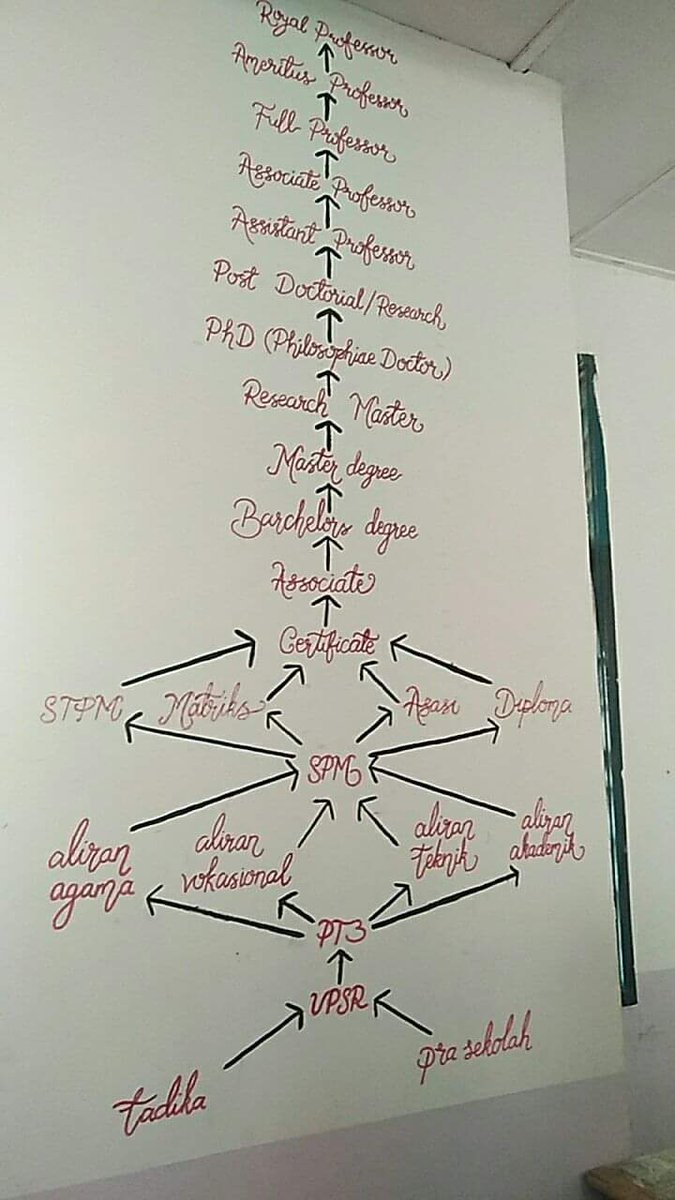 Royal Professor
Ameritus Professor
Full Professor
Associate Professor
Assistant Professor
Post Doctorial/Research
PhD (Philosophiae Doctor)
Research Master
Master degree
Barchelors degree
Associate
Certificate
STPM Matriks Asasi Diploma
SPM
aliran agama
aliran vokasional
aliran teknik
aliran akademik
PT3
UPSR
tadika
pra sekolah